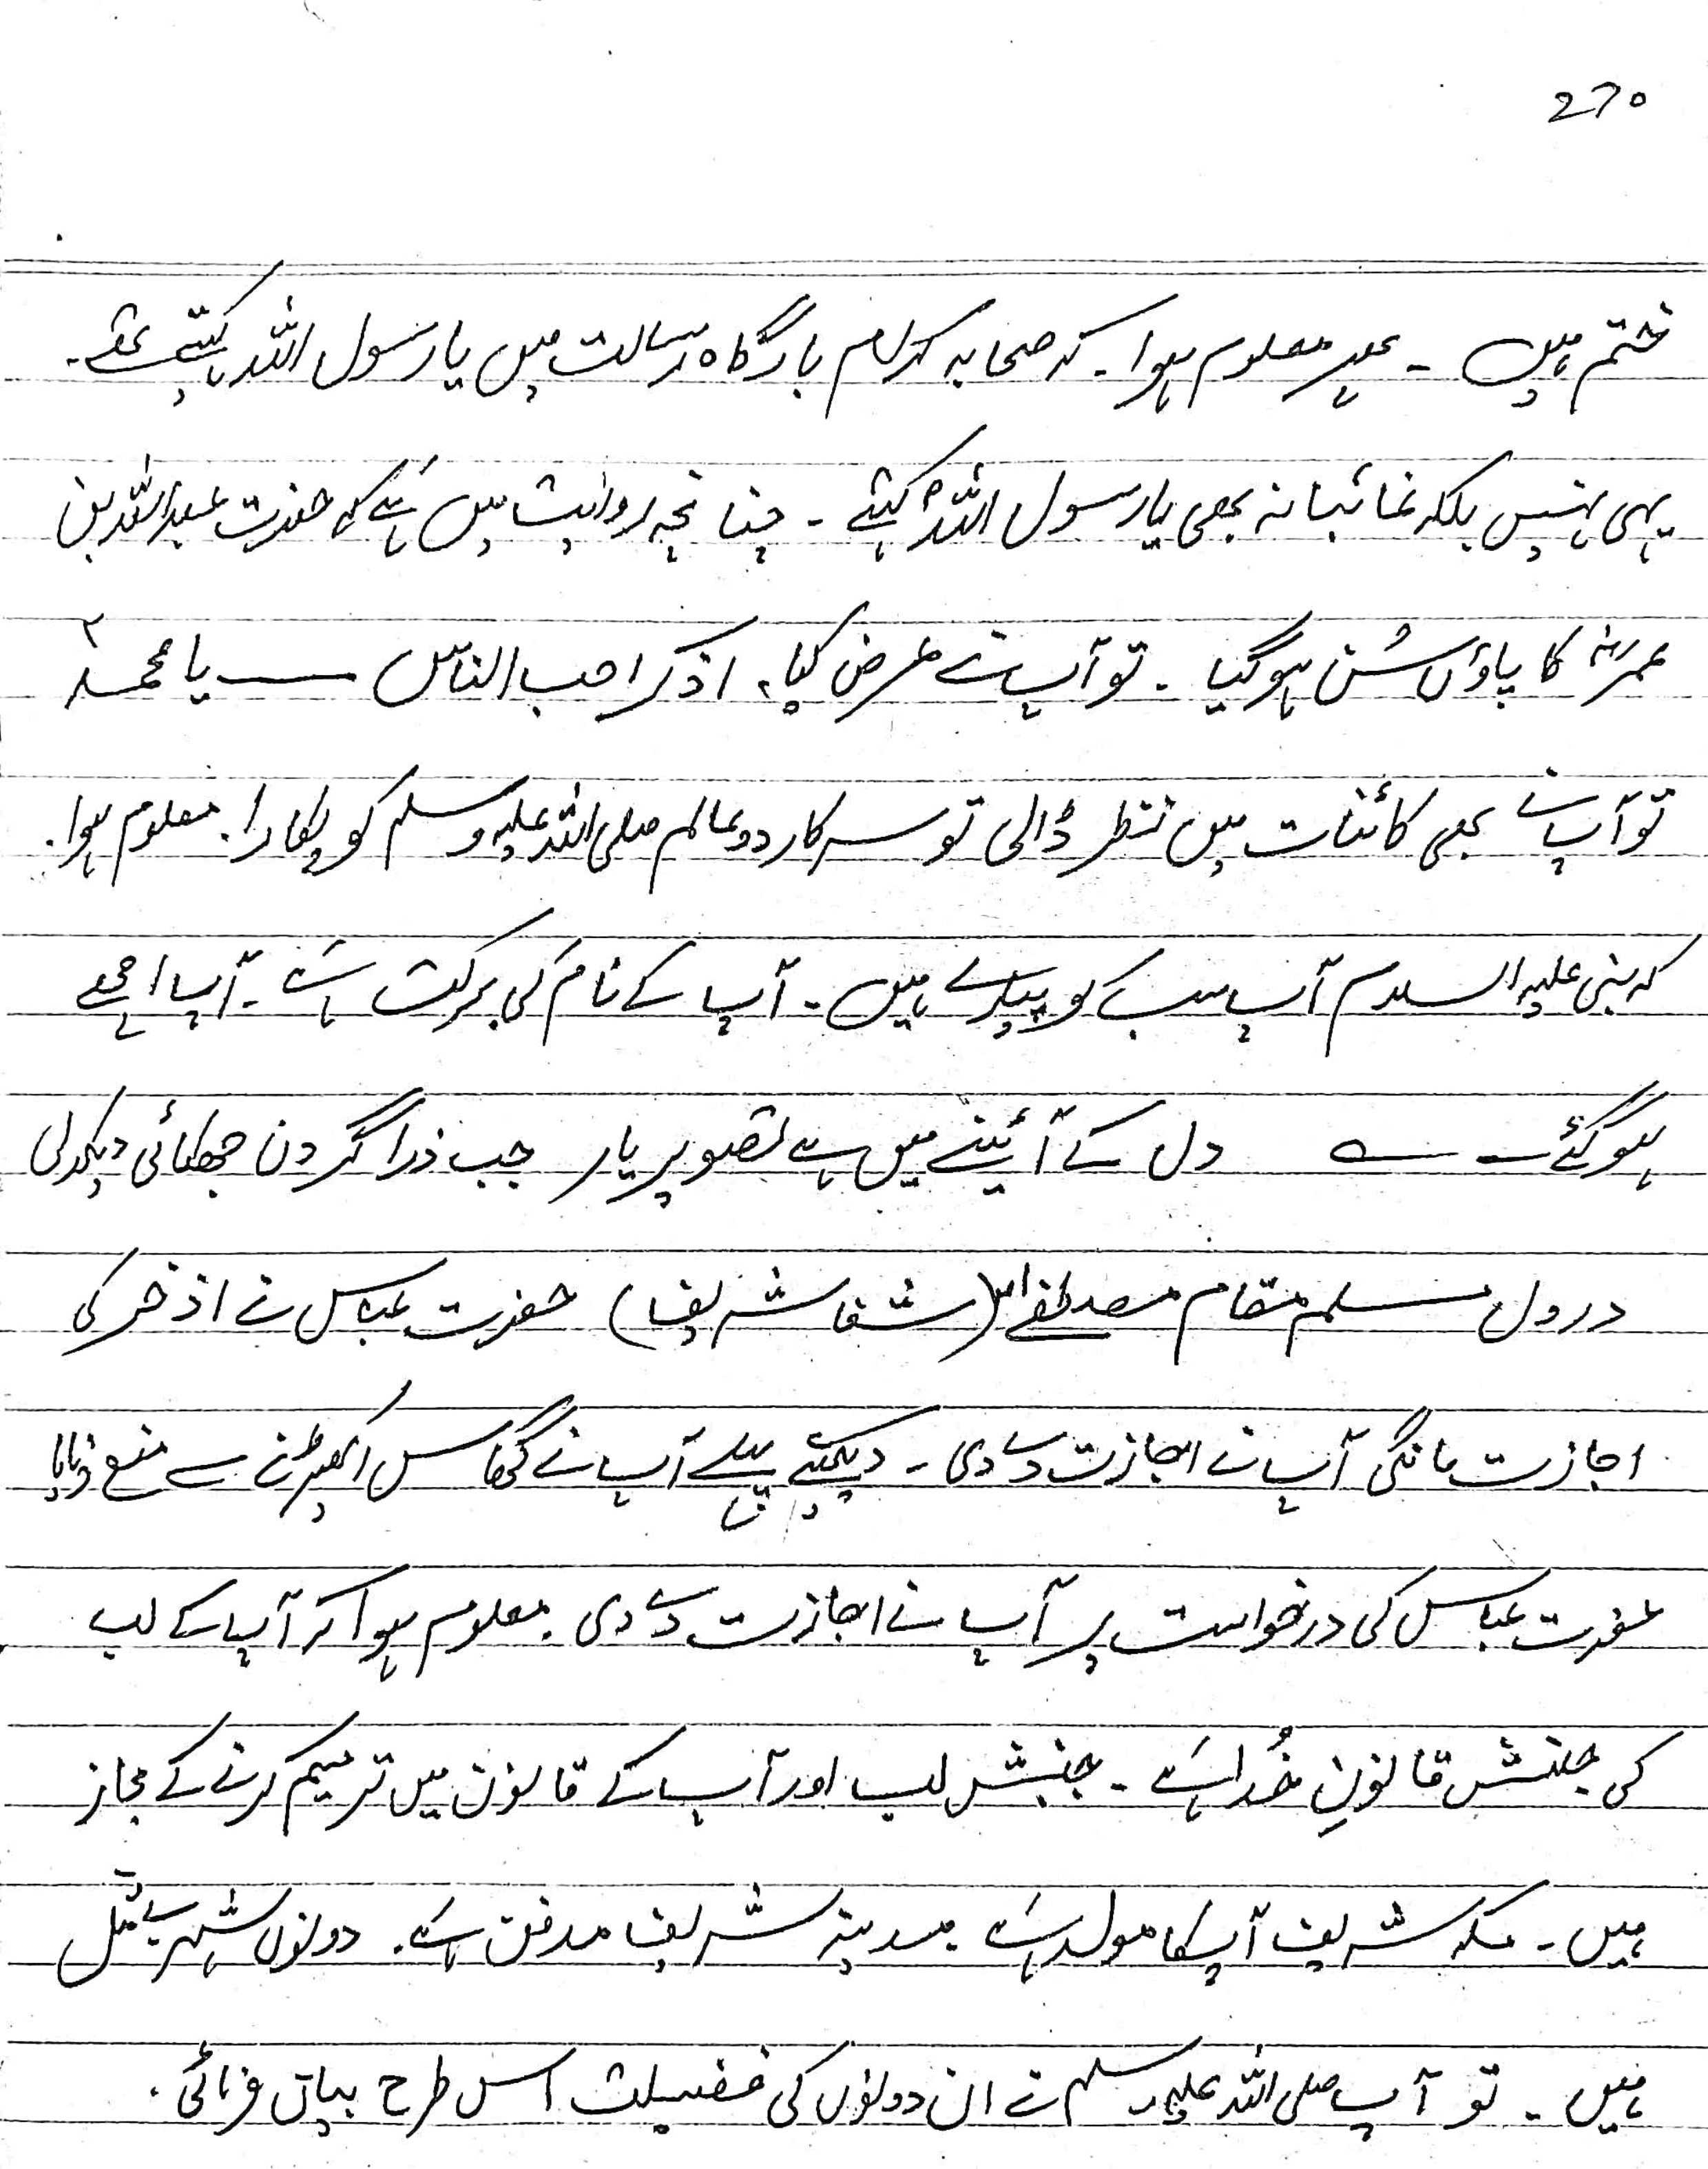 270
ختم ہیں ۔ پھر معلوم ہوا ۔ کہ صحابہ کرام بارگاہ رسالت میں یا رسول اللہ کہتے تھے ۔
یہی نہیں بلکہ غائبانہ بھی یا رسول اللہ کہتے ۔ چنانچہ روایت میں ہے کہ حضرت عبداللہ بن
عمر کا پاؤں سُن ہو گیا ۔ تو آپ نے عرض کیا ۔ اذکر احب الناس ـــــ یا محمد
تو آپ نے بھی کائنات میں نظر ڈالی تو سرکار دو عالم صلی اللہ علیہ وسلم کو پکارا ۔ معلوم ہوا ۔
کہ نبی علیہ السلام آپ سب کو پیارے ہیں ۔ آپ کے نام کی برکت ہے ۔ آپ اچھے
ہو گئے ـــــ دل کے آئینے میں ہے تصویر یار جب ذرا گردن جھکائی دیکھ لی
در دل مسلم مقام مصطفے است (شفا شریف) حضرت عباس نے اذخر کی
اجازت مانگی آپ نے اجازت دے دی ۔ دیکھئے پہلے آپ نے گھاس اکھیڑنے سے منع فرمایا
حضرت عباس کی درخواست پر آپ نے اجازت دے دی ۔ معلوم ہوا کہ آپ کے لب
کی جنبش قانونِ خُدا ہے ۔ جنبش لب اور آپ کے قانون میں ترمیم کرنے کے مجاز
ہیں ۔ مکہ شریف آپ کا مولد ہے ۔ مدینہ شریف مدفن ہے ۔ دونوں شہر بے مثل
ہیں ۔ تو آپ صلی اللہ علیہ وسلم نے ان دونوں کی فضیلت اس طرح بیان فرمائی ۔